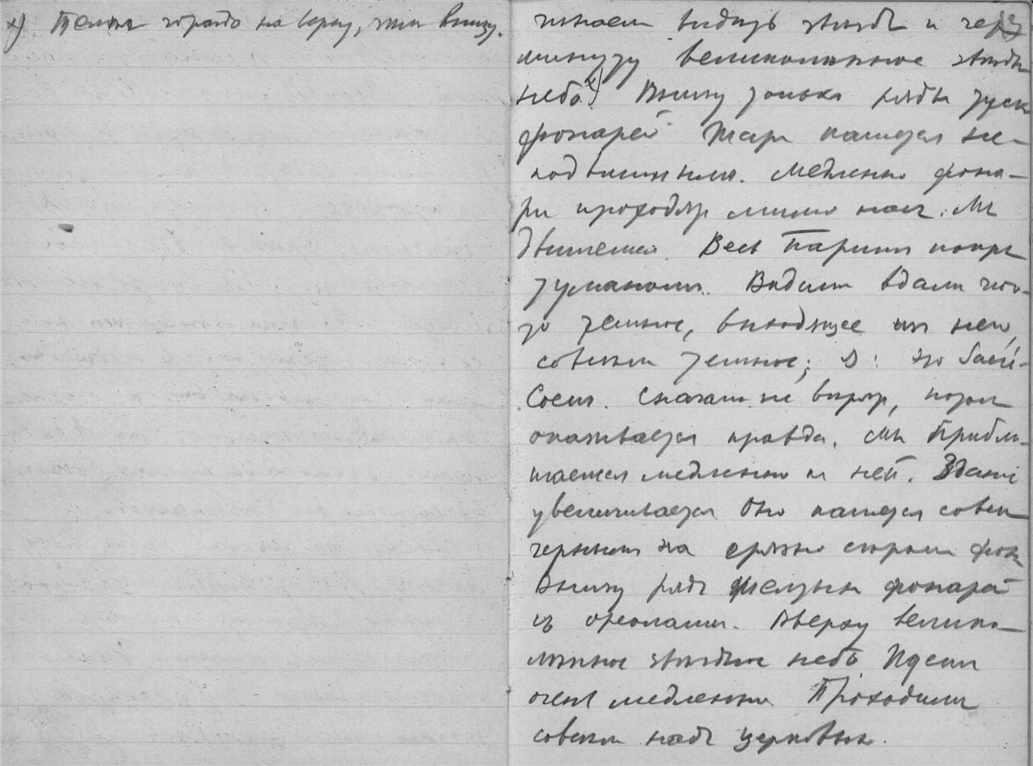 x) Теплѣе гораздо на верху, чѣмъ внизу.
чинаем видать звѣзды и через
минуту великолѣпное звѣздн
небо x). Внизу только ряды туск
фонарей Шаръ кажется не-
подвижнымъ. Медленно фона-
ри проходят мимо нас. Мы
движемся. Весь Париж покрыт
туманом. Видим вдали что-
то темное, выходящее из него,
совсѣм темное; D: это
Сначала не вѣрят, потом
оказывается правда. Мы прибли-
жаемся медленно к ней. Здание
увеличивается Оно кажется совсем
черным на грязно сѣром фонѣ
Внизу ряды желтых фонарей
съ ореолами. Вверху велико-
лѣпное звѣздное небо Идем
очень медленно Проходим
совсем надъ церковью.